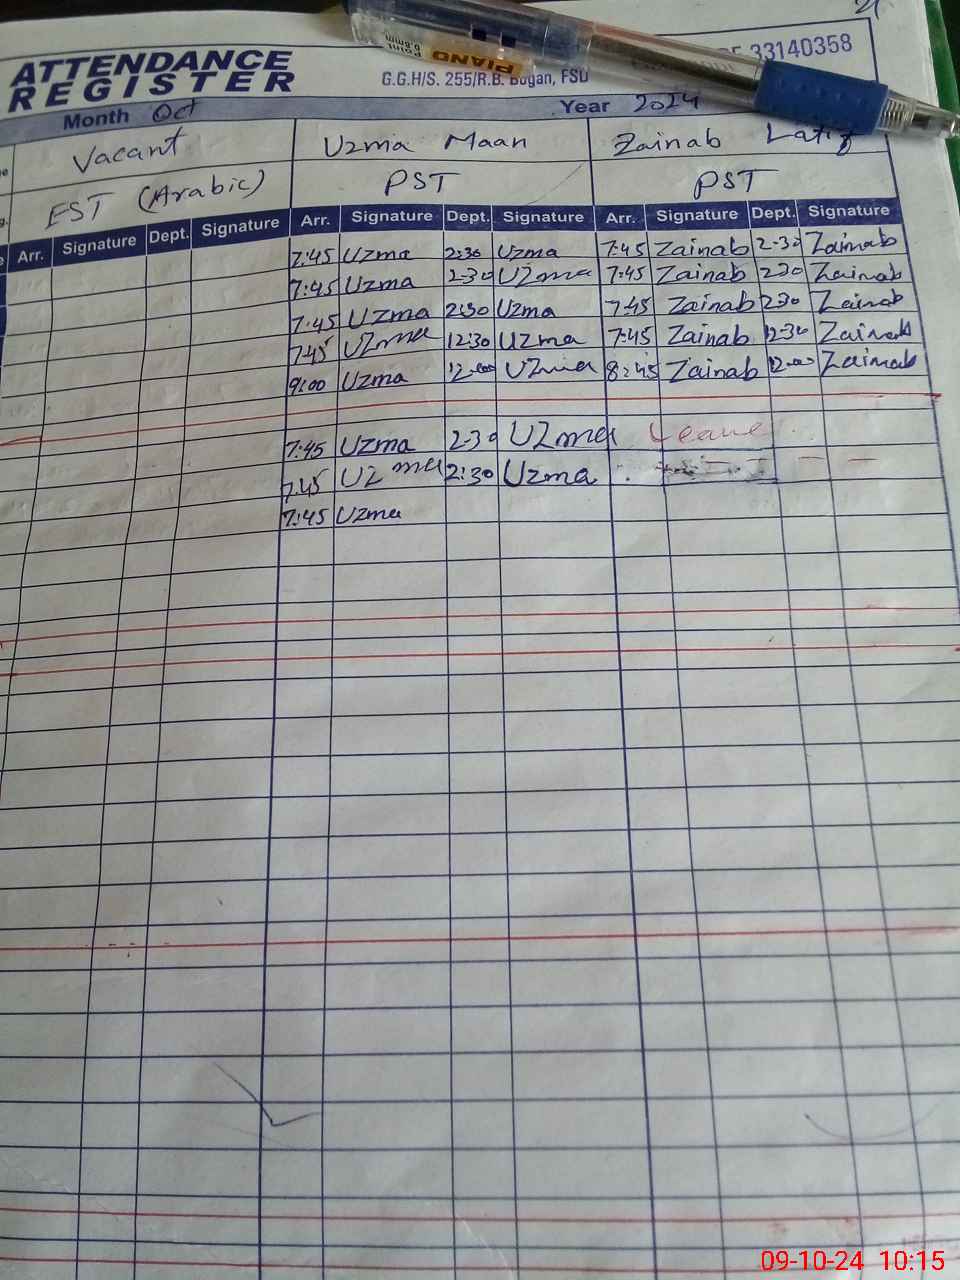 ATTENDANCE
REGISTER
G.G.H/S. 255/R.B. Dogan, FSD
33140358
Month Oct Year 2024
Vacant Uzma Maan Zainab Latif
EST (Arabic) PST PST
Arr. Signature Dept. Signature Arr. Signature Dept. Signature Arr. Signature Dept. Signature
7:45 Uzma 2:30 Uzma 7:45 Zainab 2-30 Zainab
7:45 Uzma 2-30 Uzma 7:45 Zainab 230 Zainab
7:45 Uzma 2:30 Uzma 7:45 Zainab 230 Zainab
7:45 Uzma 12:30 Uzma 7:45 Zainab 12-30 Zainab
9:00 Uzma 12-00 Uzma 8:45 Zainab 12-00 Zainab
7:45 Uzma 2-30 Uzma Leave
7:45 Uzma 2:30 Uzma
7:45 Uzma
PIANO
Point
0.8mm
09-10-24 10:15